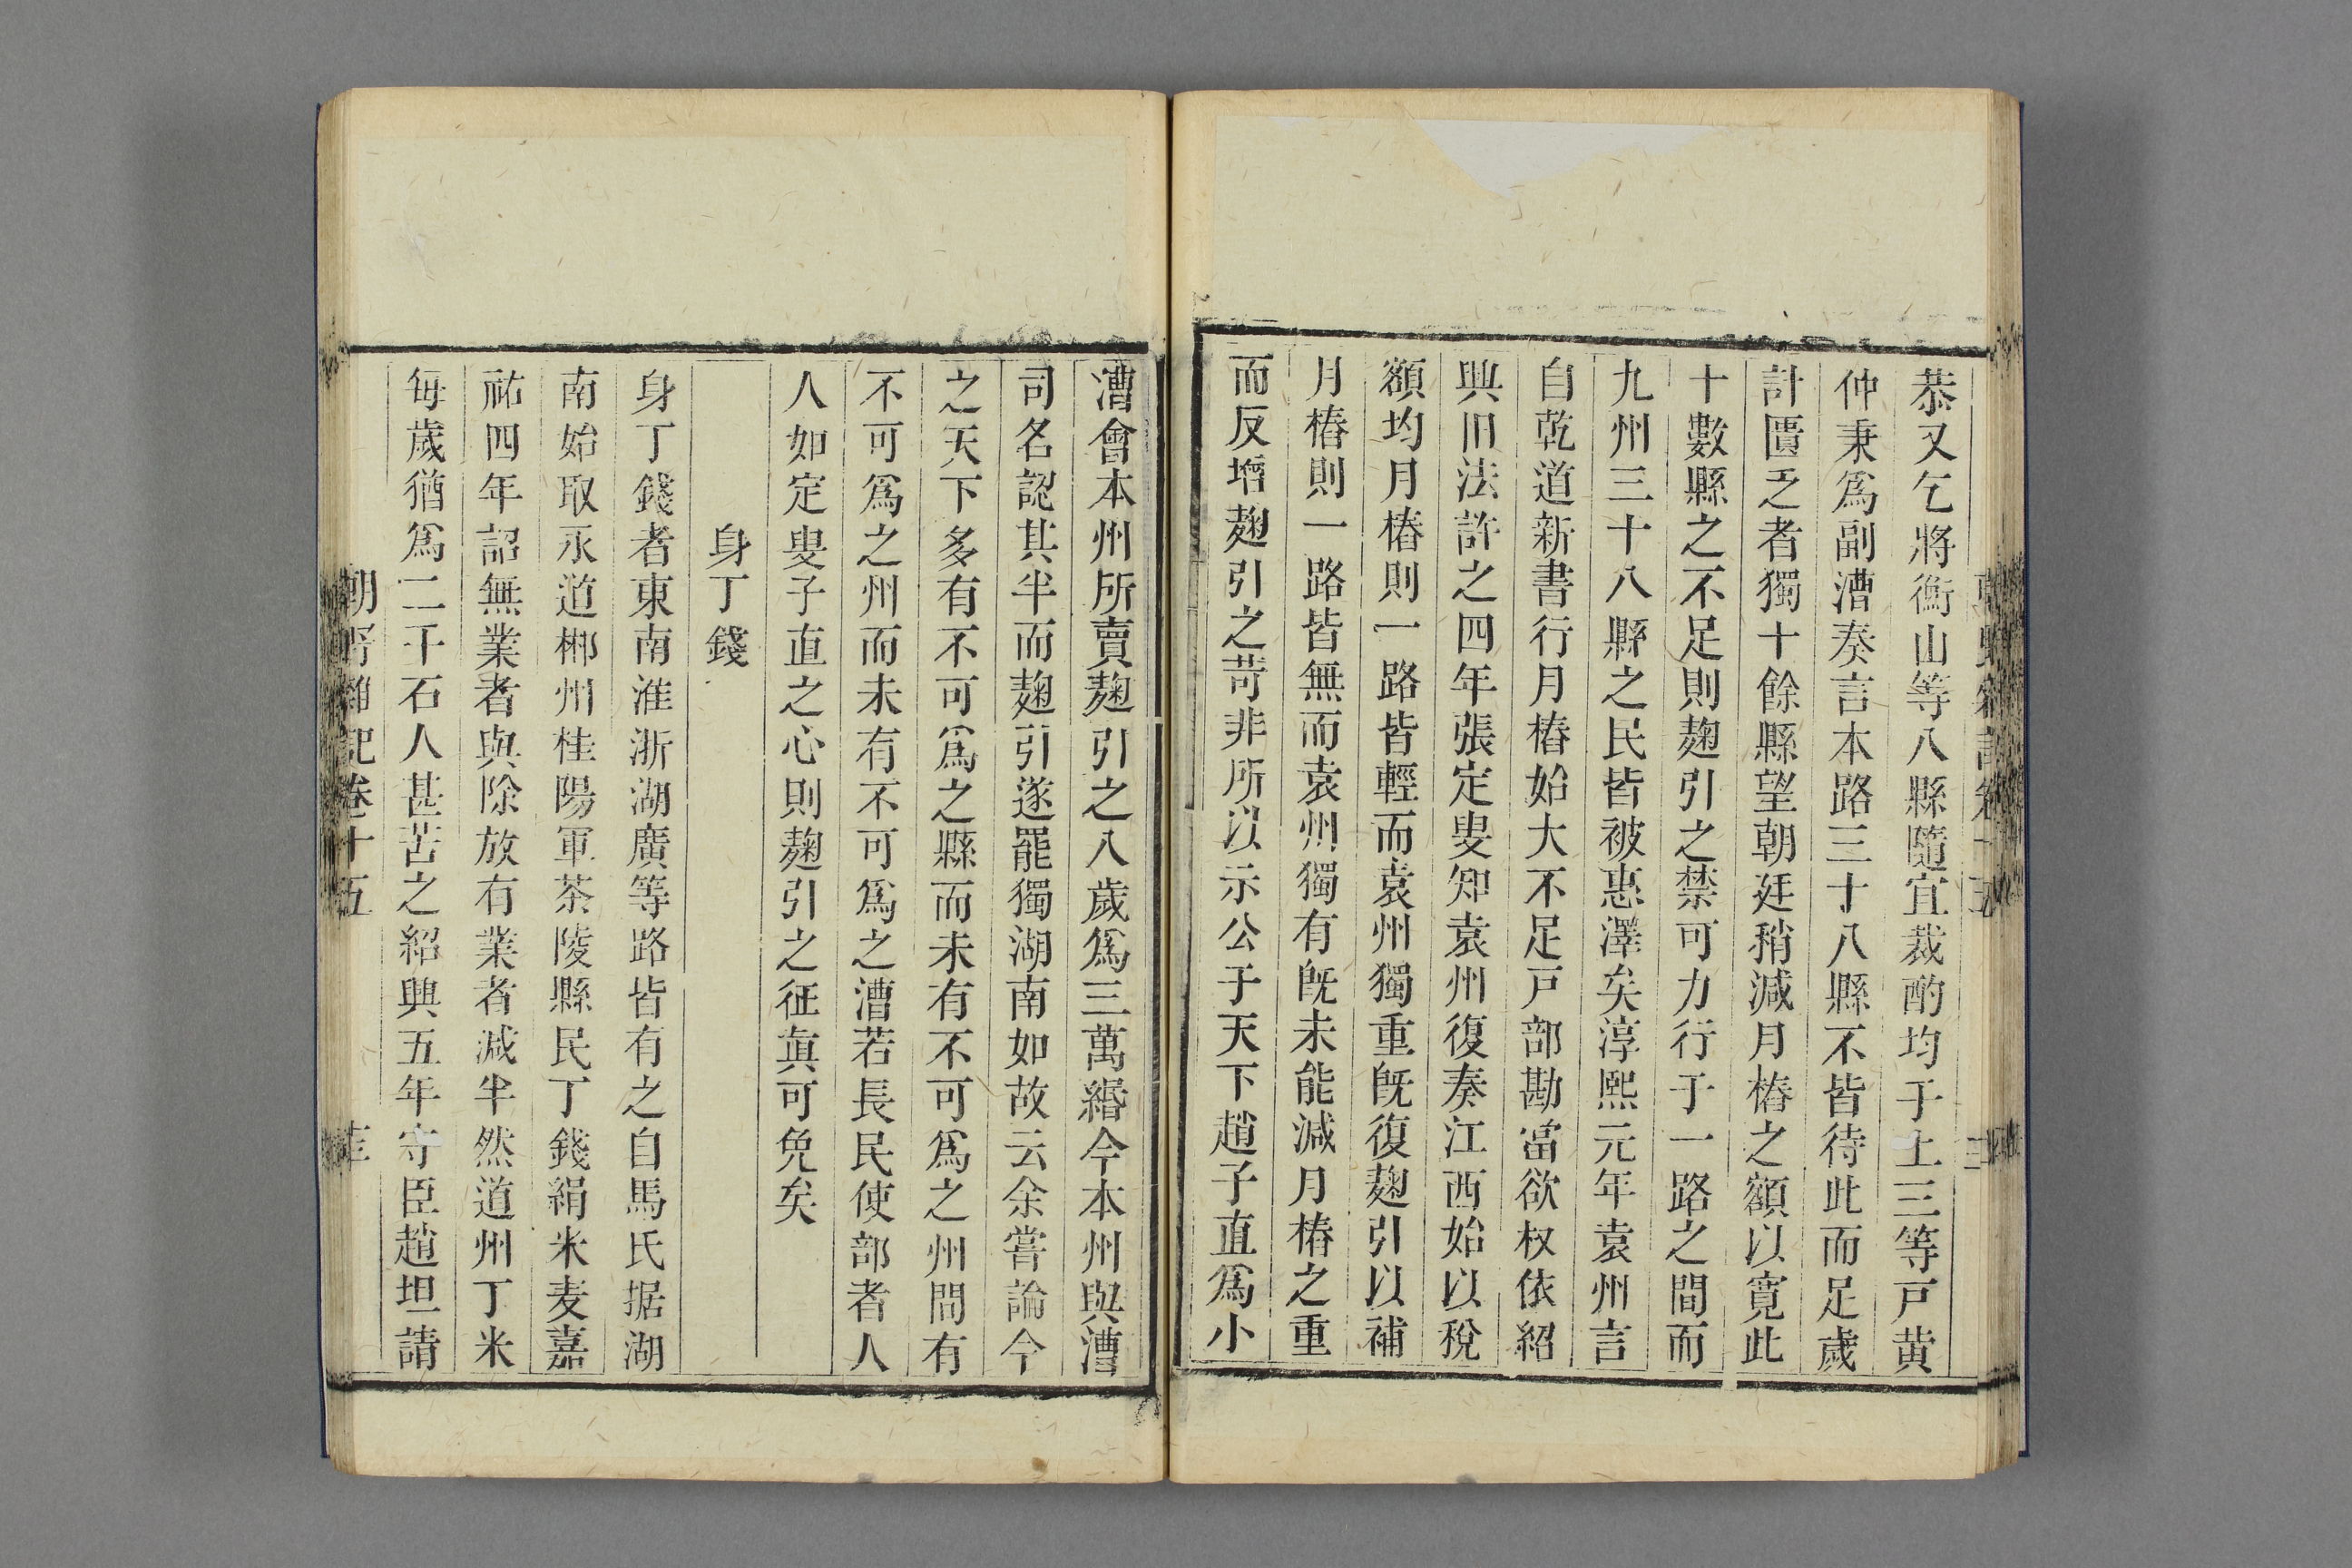 恭又乞將衡山等八縣隨宜裁酌均于上三等戸黄
仲秉爲副漕奏言本路三十八縣不皆待此而足歲
計匱乏者獨十餘縣望朝廷稍減月樁之額以寛此
十數縣之不足則麹引之禁可力行于一路之間而
九州三十八縣之民皆被惠澤矣淳熙元年袁州言
自乾道新書行月樁始大不足戸部勘當欲权依紹
興旧法許之四年張定叟知袁州復奏江西始以稅
額均月樁則一路皆輕而袁州獨重旣復麹引以補
月樁則一路皆無而袁州獨有旣未能減月樁之重
而反增麹引之苛非所以示公于天下趙子直爲小
漕會本州所賣麹引之入歲爲三萬緡今本州與漕
司名認其半而麹引遂罷獨湖南如故云余嘗論今
之天下多有不可爲之縣而未有不可爲之州間有
不可爲之州而未有不可爲之漕若長民使部者人
人如定叟子直之心則麹引之征眞可免矣
身丁錢
身丁錢者東南淮浙湖廣等路皆有之自馬氏据湖
南始取永道郴州桂陽軍茶陵縣民丁錢絹米麦嘉
祐四年詔無業者與除放有業者減半然道州丁米
每歲猶爲二千石人甚苦之紹興五年守臣趙坦請
朝野雜記卷十五